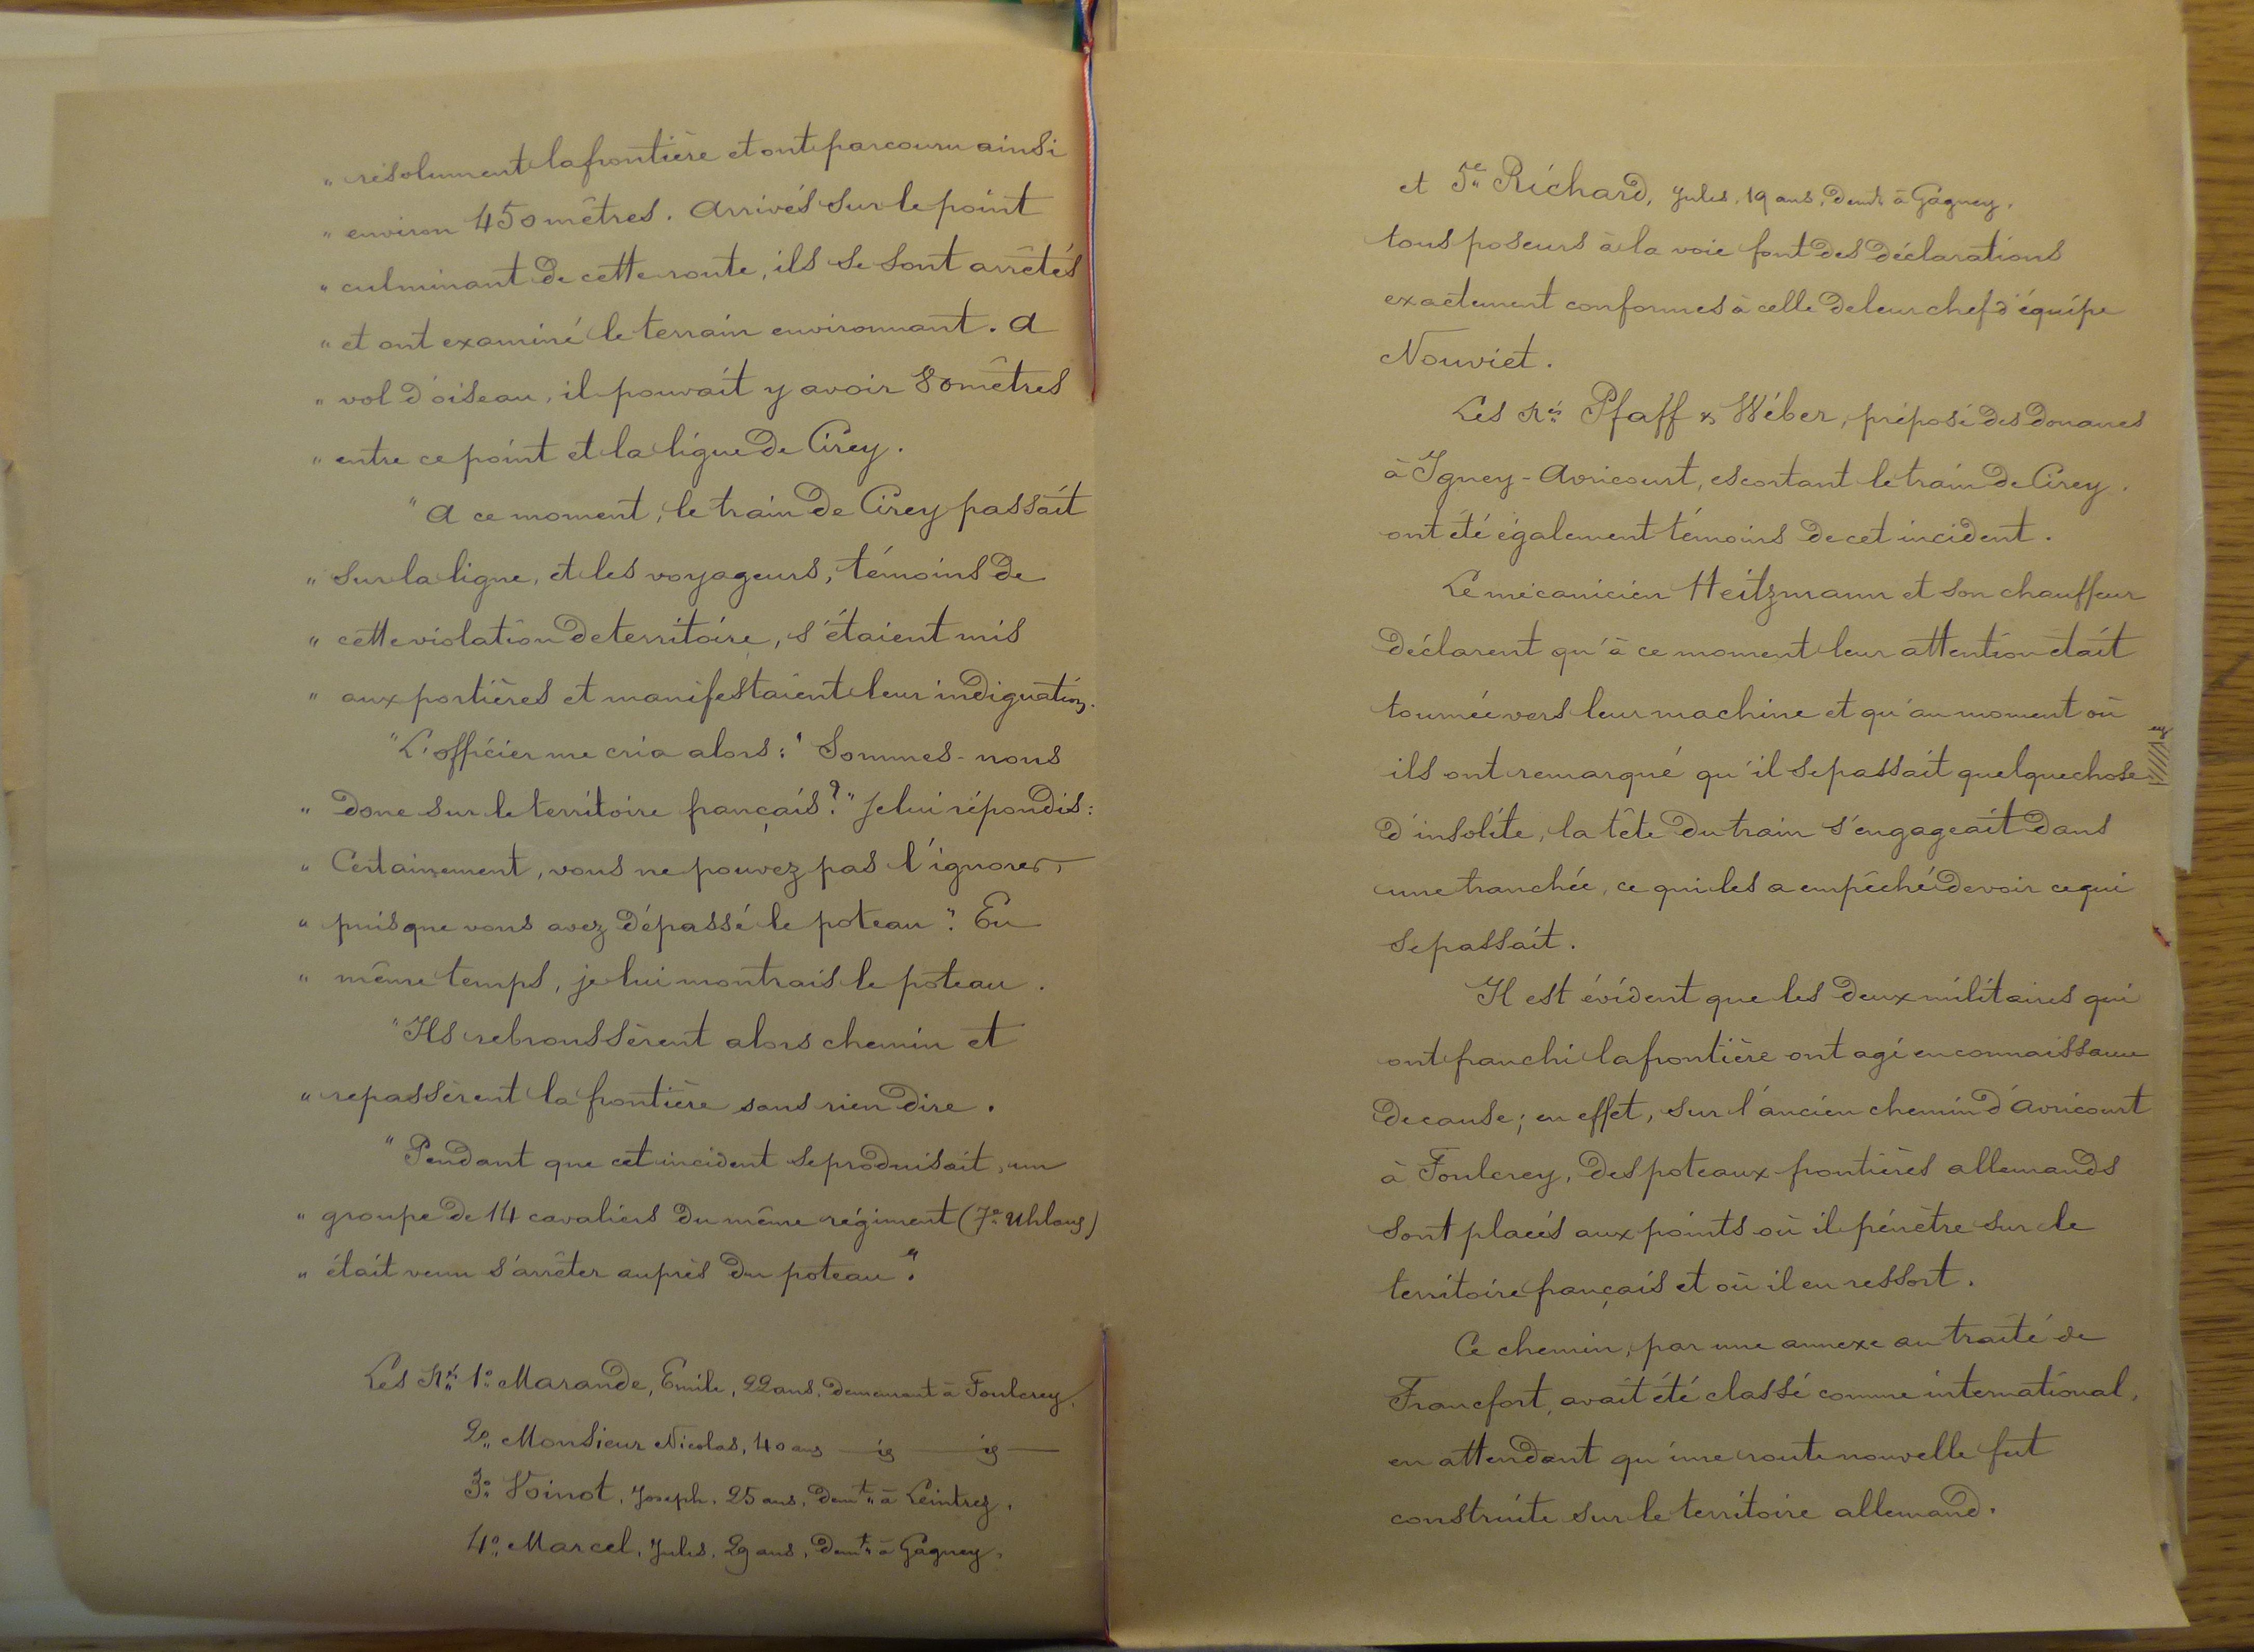 " résolument la frontière et ont parcouru ainsi
" environ 450 mètres. Arrivés sur le point
" culminant de cette route, ils se sont arrêtés
" et ont examiné le terrain environnant. A
" vol d'oiseau, il pouvait y avoir 80 mètres
" entre ce point et la ligne de Cirey.
" A ce moment, le train de Cirey passait
" sur la ligne, et les voyageurs, témoins de
" cette violation de territoire, s'étaient mis
" aux portières et manifestaient leur indignation.
" L'officier me cria alors: " Sommes-nous
" donc sur le territoire français?" Je lui répondis:
" Certainement, vous ne pouvez pas l'ignorer,
" puisque vous avez dépassé le poteau". En
" même temps, je lui montrais le poteau.
" Ils rebroussèrent alors chemin et
" repassèrent la frontière sans rien dire.
" Pendant que cet incident se produisait, un
" groupe de 14 cavaliers du même régiment (7e Uhlans)
" était venu s'arrêter auprès du poteau".
Les Nés 1° Marande, Emile, 22 ans, demeurant à Foulcrey,
2° Monsieur Nicolas, 40 ans — id — id —
3° Voinot, Joseph, 25 ans, demt à Leintrey,
4° Marcel, Jules, 29 ans, demt à Gagney,
et 5e Richard, Jules, 19 ans, demt à Gagney,
tous poseurs à la voie font des déclarations
exactement conformes à celle de leur chef d'équipe
Nouviet.
Les Nés Pfaff & Wéber, préposé des douanes
à Igney-Avricourt, escortant le train de Cirey,
ont été également témoins de cet incident.
Le mécanicien Heitzmann et son chauffeur
déclarent qu'à ce moment leur attention était
tournée vers leur machine et qu'au moment où
ils ont remarqué qu'il se passait quelque chose
d'insolite, la tête du train s'engageait dans
une tranchée, ce qui les a empêché de voir ce qui
se passait.
Il est évident que les deux militaires qui
ont franchi la frontière ont agi en connaissance
de cause; en effet, sur l'ancien chemin d'Avricourt
à Foulcrey, des poteaux-frontières allemands
sont placés aux points où il pénètre sur le
territoire français et où il en ressort.
Ce chemin, par une annexe au traité de
Francfort, avait été classé comme international,
en attendant qu'une route nouvelle fut
construite sur le territoire allemand.